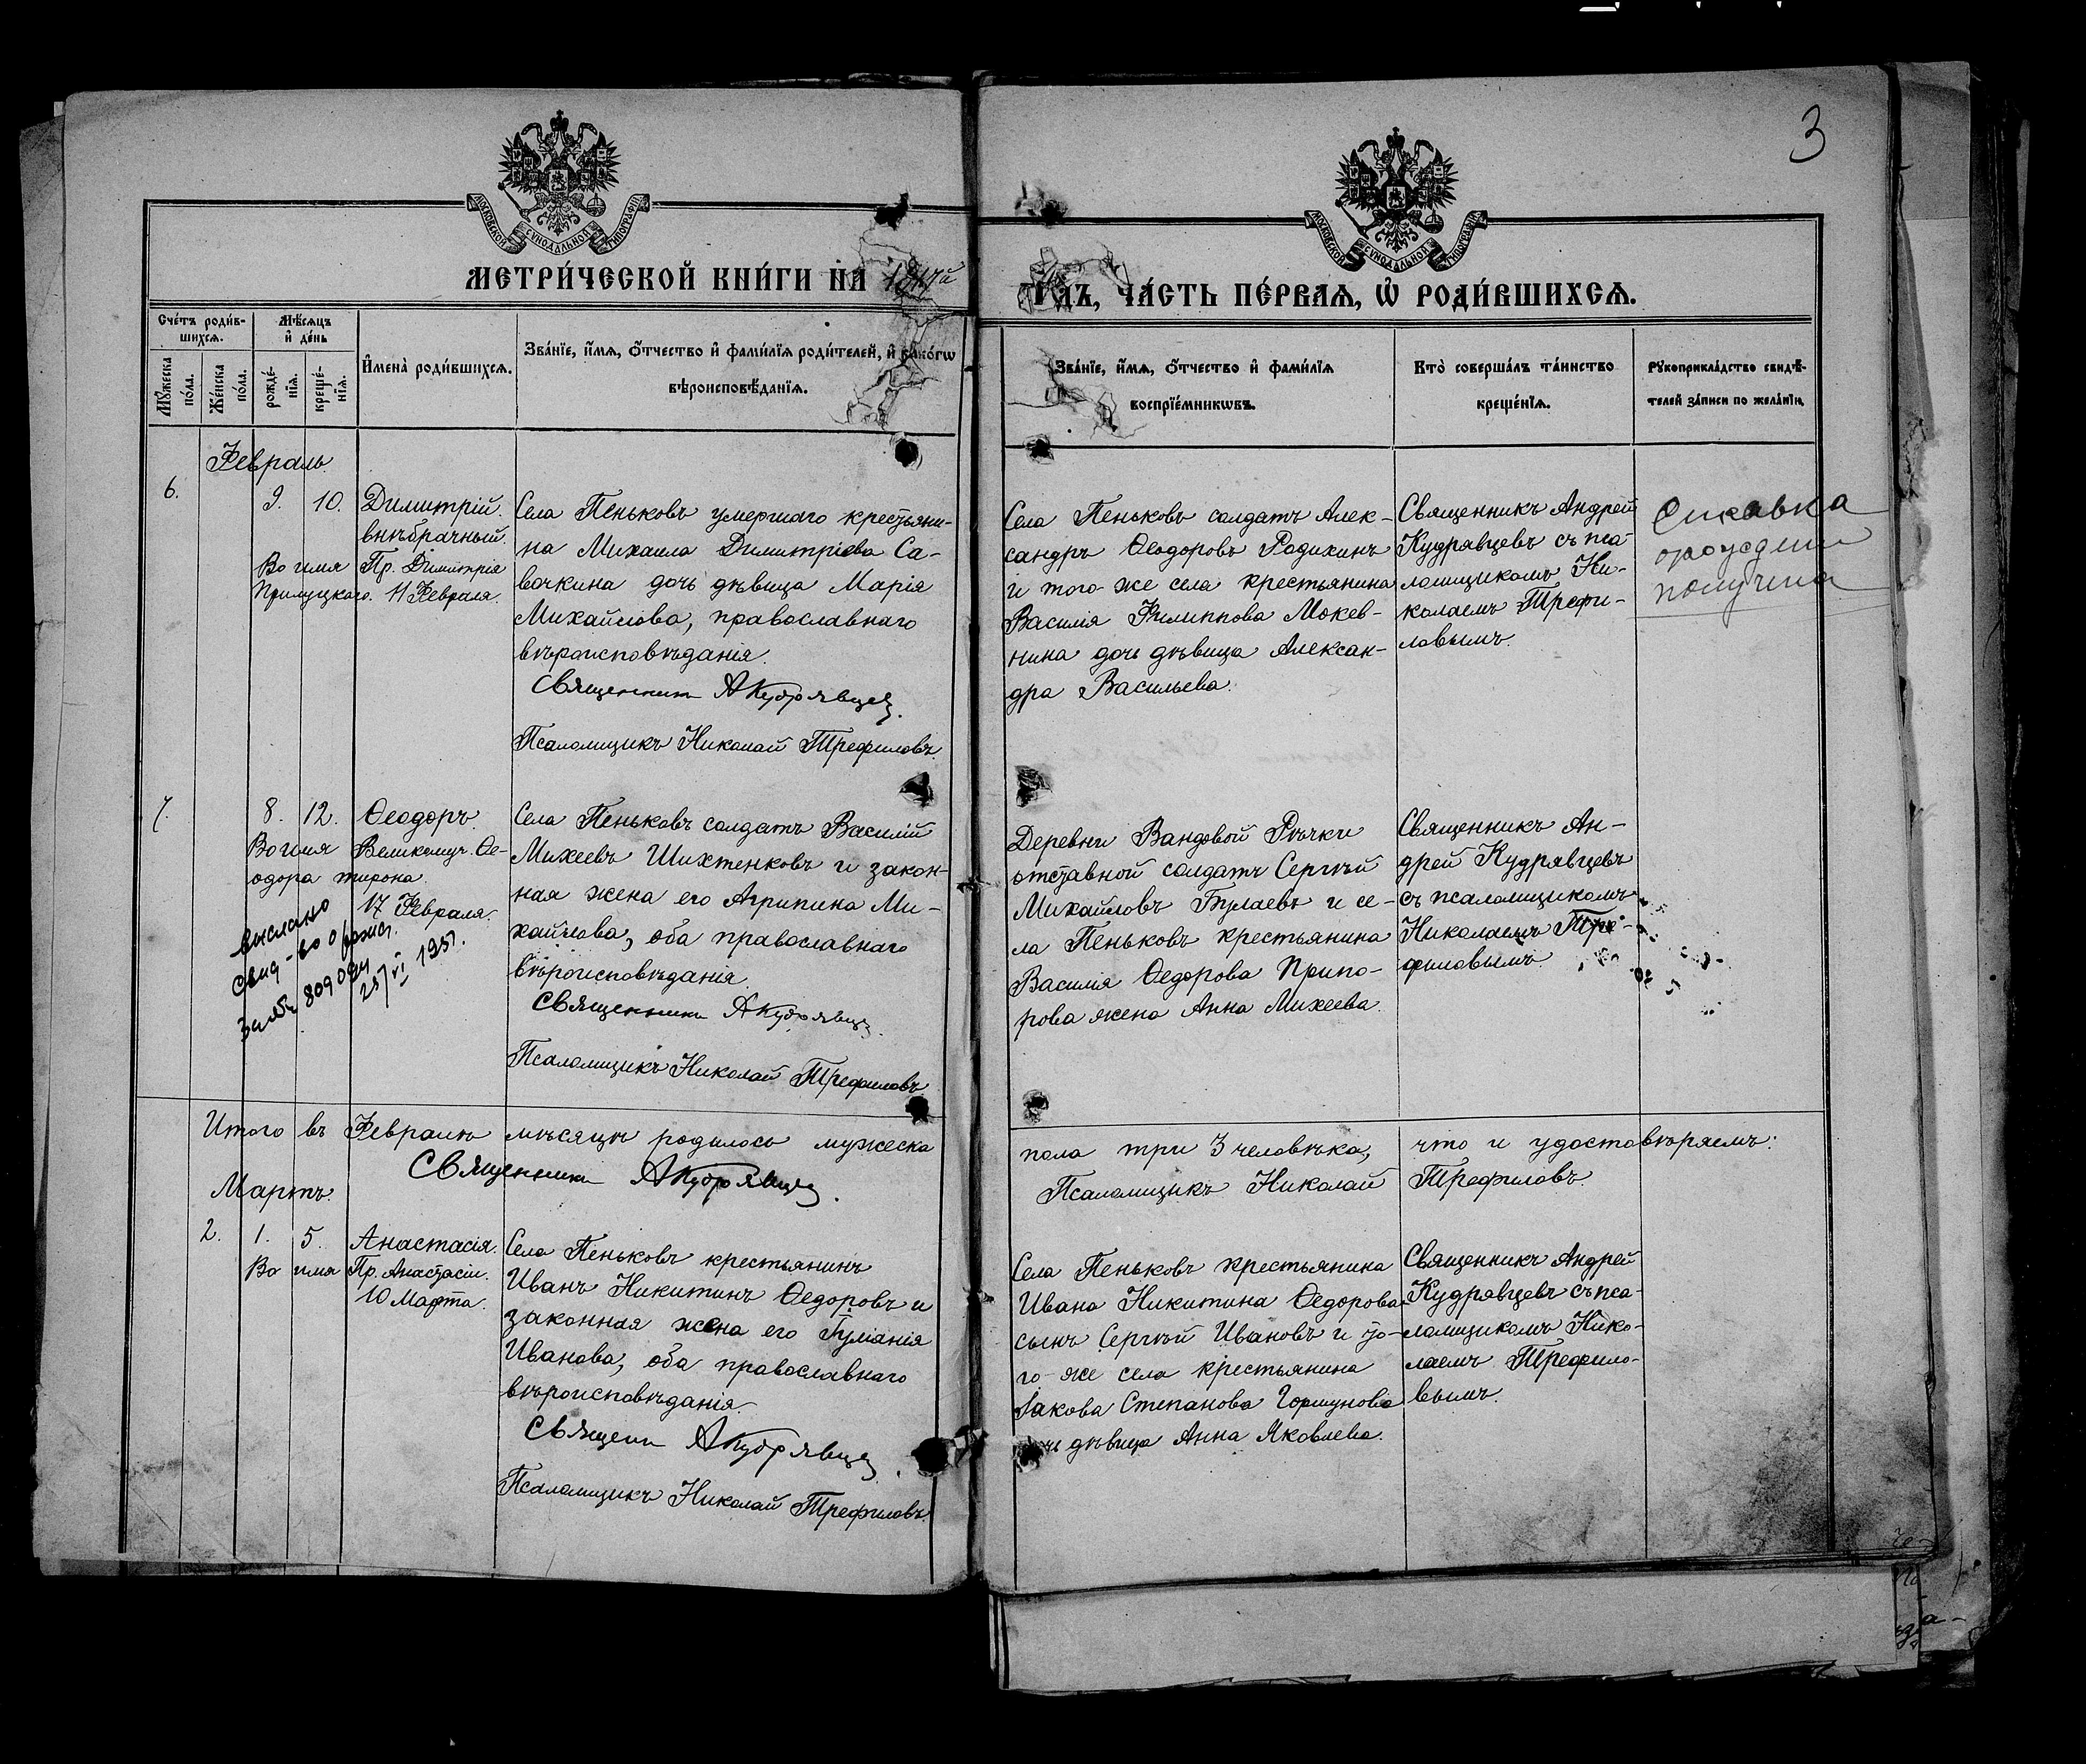 3
МОСКОВСКОЙ СѴНОДАЛЬНОЙ ТИПОГРАФІИ
МОСКОВСКОЙ СѴНОДАЛЬНОЙ ТИПОГРАФІИ
МЕТРИ́ЧЕСКОЙ КНИ́ГИ НА
ЧА́СТЬ ПЕ́РВАѦ, Ѡ҆ РОДИ́ВШИХСѦ.
Сче́тъ роди́в-
шихсѧ.
Мѣ́сѧцъ
и҆ де́нь
Мꙋ́жеска
по́ла.
Же́нска
по́ла.
рожде́-
нїѧ.
креще́-
нїѧ.
И҆мена̀ роди́вшихсѧ.
Зва́нїе, и҆́мѧ, ѻ҆́тчество и҆ фами́лїѧ роди́телей, и҆ како́гѡ
вѣроисповѣ́данїѧ.
Зва́нїе, и҆́мѧ, ѻ҆́тчество и҆ фами́лїѧ
воспрїе́мникѡвъ.
Кто̀ соверша́лъ та́инство
креще́нїѧ.
Рꙋкоприкла́дство свидѣ́-
телей за́писи по жела́нїю.
Февраль.
6.
9. 10.
Димитрій.
внѣбрачный.
Во имя Пр. Димитрія
Прилуцкаго. 11 Февраля.
Села Пеньковъ умершаго крестьяни-
на Михаила Димитріева Са-
вочкина дочь дѣвица Марія
Михайлова, православнаго
вѣроисповѣданія.
Священник АКудрявцев.
Псаломщикъ Николай Трефиловъ.
Села Пеньковъ солдатъ Алек-
сандръ Ѳеодоровъ Родихинъ
и того-же села крестьянина
Василія Филиппова Мокев-
нина дочь дѣвица Алексан-
дра Васильева.
Священникъ Андрей
Кудрявцевъ съ пса-
ломщикомъ Ни-
колаемъ Трефи-
ловымъ.
Справка
о рождении
получена
7.
8. 12.
Ѳеодоръ.
Во имя Великомуч. Ѳе-
одора тирона.
17 Февраля.
выслано
свид-во о рожд.
809094
25/VI 195
Села Пеньковъ солдатъ Василій
Михеевъ Шихтенковъ и закон-
ная жена его Агрипина Ми-
хайлова, оба православнаго
вѣроисповѣданія.
Священник АКудрявцев.
Псаломщикъ Николай Трефиловъ
Деревни Вандовой Рѣчки
отставной солдатъ Сергѣй
Михайловъ Булаевъ и се-
ла Пеньковъ крестьянина
Василія Ѳедорова Припо-
рова жена Анна Михеева.
Священникъ Ан-
дрей Кудрявцевъ
съ псаломщикомъ
Николаемъ Тре-
филовымъ.
Итого въ Февралѣ мѣсяцѣ родилось мужеска
пола три 3 человѣка, что и удостовѣряемъ:
Священник АКудрявцев.
Псаломщикъ Николай Трефиловъ
Мартъ.
2.
1. 5.
Анастасія.
Во имя Пр. Анастасіи.
10 Марта.
Села Пеньковъ крестьянинъ
Иванъ Никитинъ Ѳедоровъ и
законная жена его Іуліанія
Иванова, оба православнаго
вѣроисповѣданія.
Священ АКудрявцев.
Псаломщикъ Николай Трефиловъ.
Села Пеньковъ крестьянина
Ивана Никитина Ѳедорова
сынъ Сергѣй Ивановъ и то-
го-же села крестьянина
Іакова Степанова Горшунова
дѣвица Анна Яковлева.
Священникъ Андрей
Кудрявцевъ съ пса-
ломщикомъ Нико-
лаемъ Трефило-
вымъ.